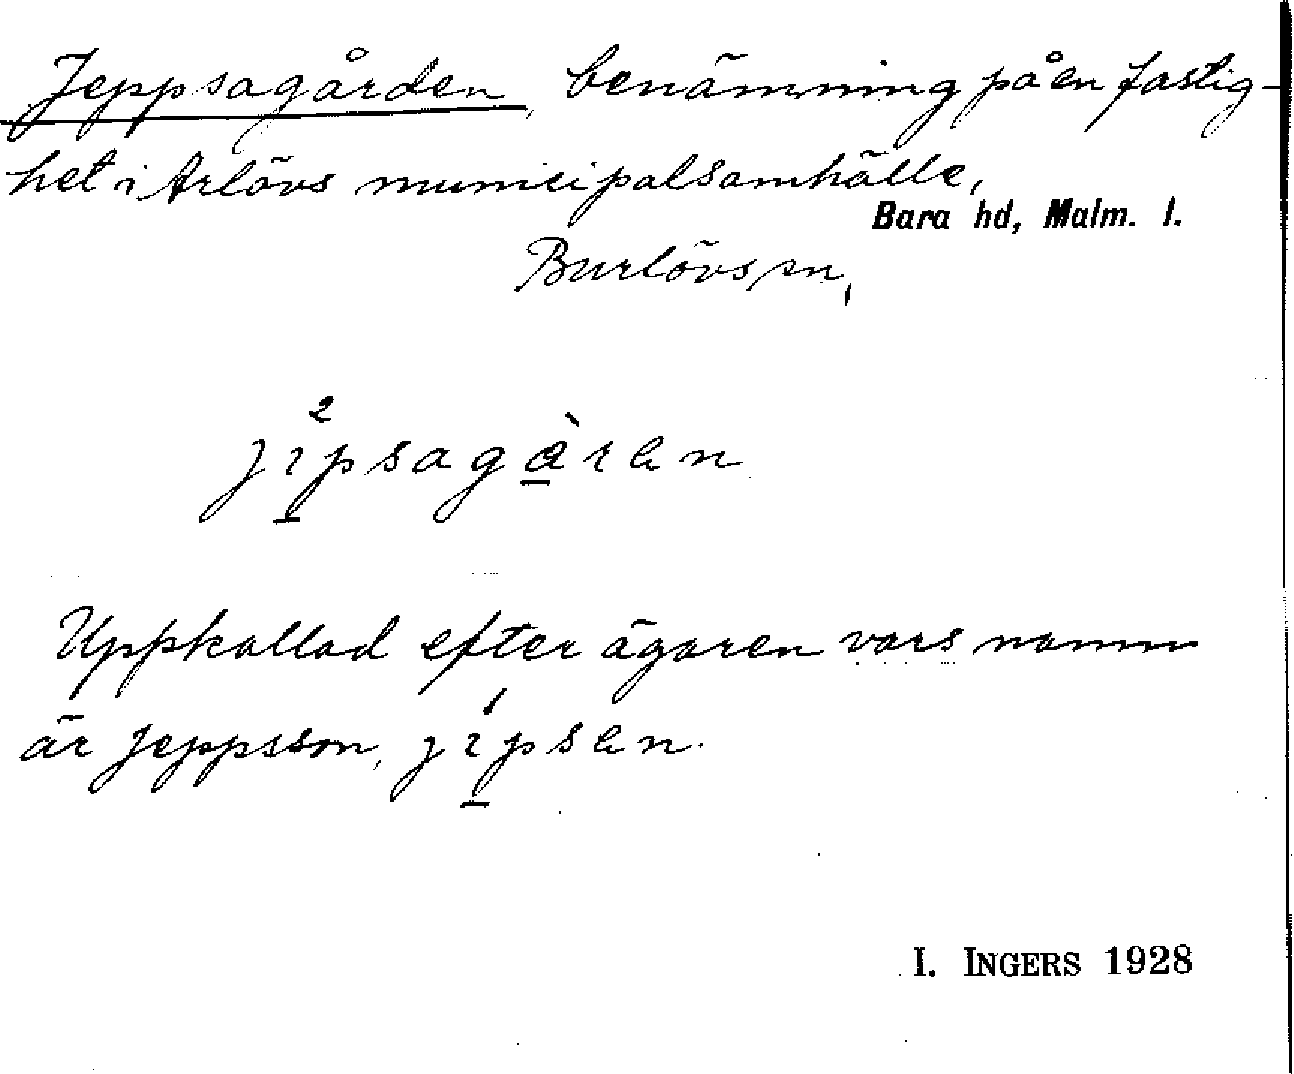 Jeppsagården, benämning på en fastig-
het i Arlövs municipalsamhälle,
Bara hd, Malm. l.
Burlövs sn,
jipsagàrən
Uppkallad efter ägaren vars namn
är Jeppsson, jipsən.
I. INGERS 1928